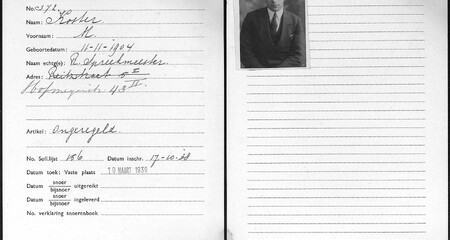 No: 372.
Naam: Koster
Voornaam: M.
Geboortedatum: 11-11-1904
Naam echtg(e): R. Spreekmeester.
Adres: Reitzstraat 5 II
43 II
Artikel: Ongeregeld.
No. Soll.lijst 186 Datum inschr. 17-10-38
Datum toek: Vaste plaats 10 MAART 1939
Datum snoer bijsnoer uitgereikt
Datum snoer bijsnoer ingeleverd
No. verklaring snoerenboek